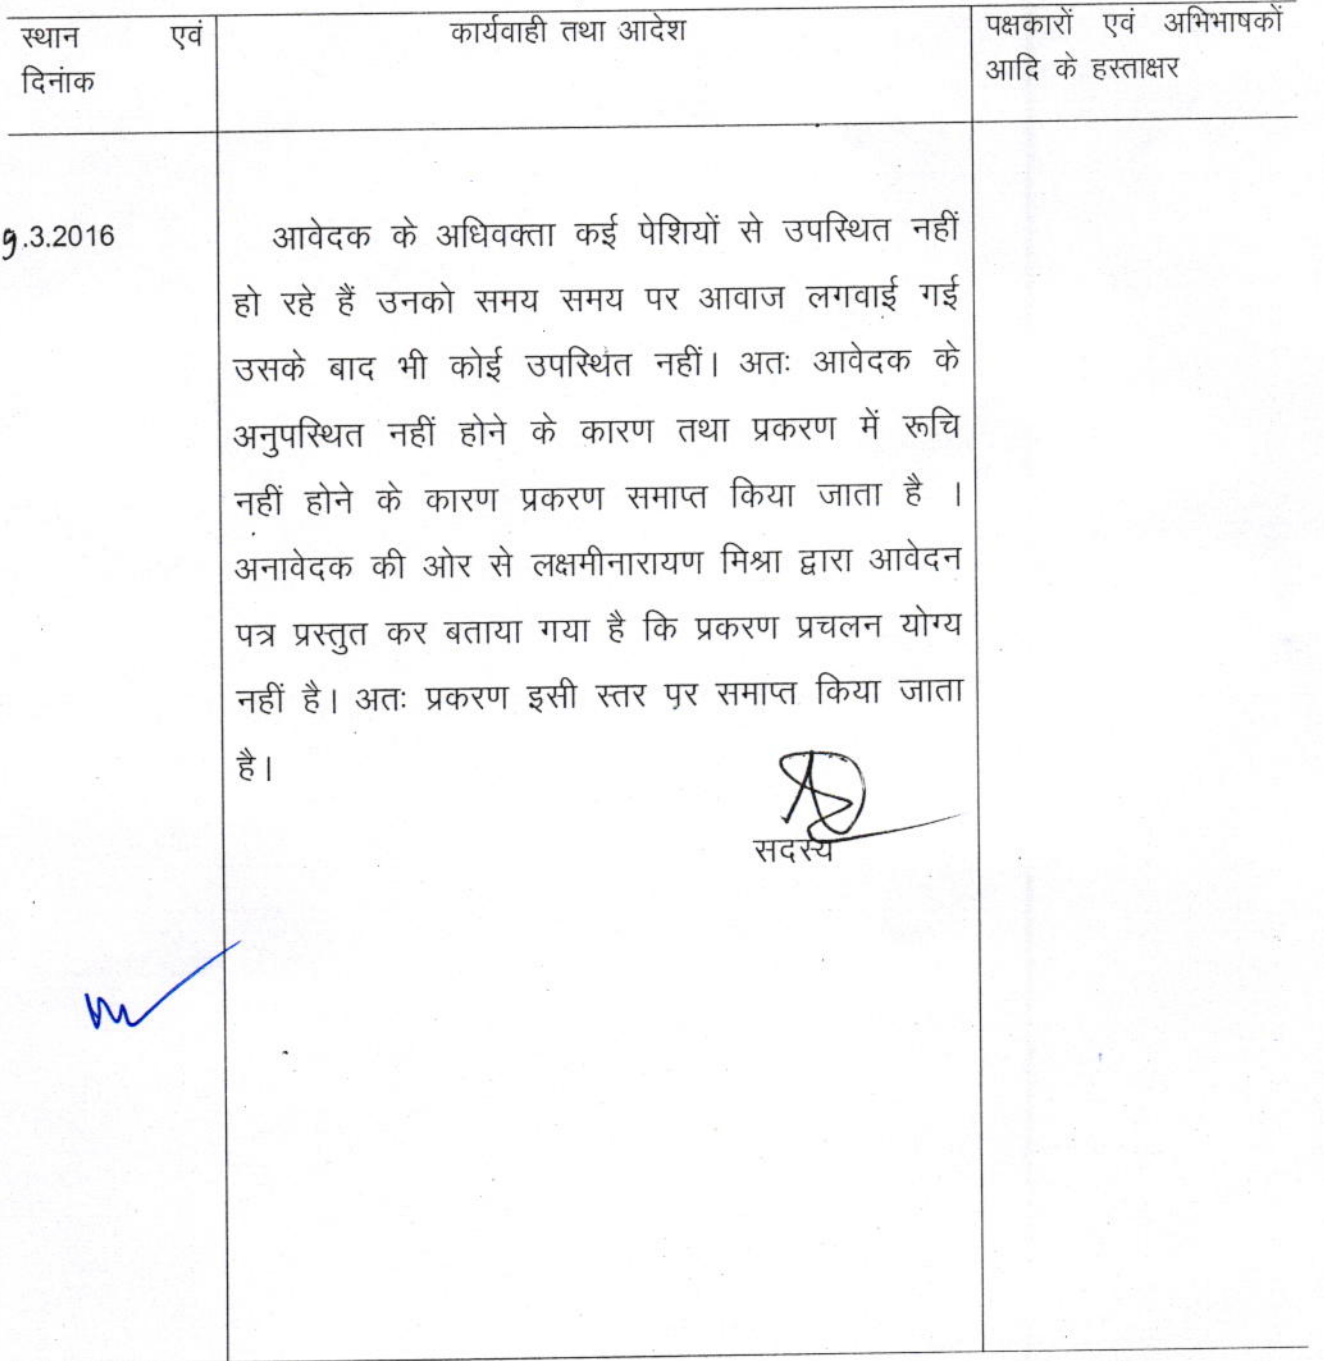 स्थान एवं
दिनांक
कार्यवाही तथा आदेश
पक्षकारों एवं अभिभाषकों
आदि के हस्ताक्षर
9.3.2016
आवेदक के अधिवक्ता कई पेशियों से उपस्थित नहीं
हो रहे हैं उनको समय समय पर आवाज लगवाई गई
उसके बाद भी कोई उपस्थित नहीं। अतः आवेदक के
अनुपस्थित नहीं होने के कारण तथा प्रकरण में रूचि
नहीं होने के कारण प्रकरण समाप्त किया जाता है ।
अनावेदक की ओर से लक्षमीनारायण मिश्रा द्वारा आवेदन
पत्र प्रस्तुत कर बताया गया है कि प्रकरण प्रचलन योग्य
नहीं है। अतः प्रकरण इसी स्तर पर समाप्त किया जाता
है।
सदस्य